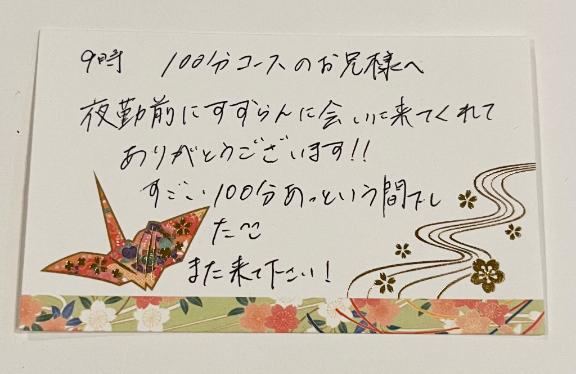 9時 100分コースのお兄様へ
夜勤前にすずらんに会いに来てくれて
ありがとうございます!!
すごい100分あっという間でし
た〜
また来て下さい!